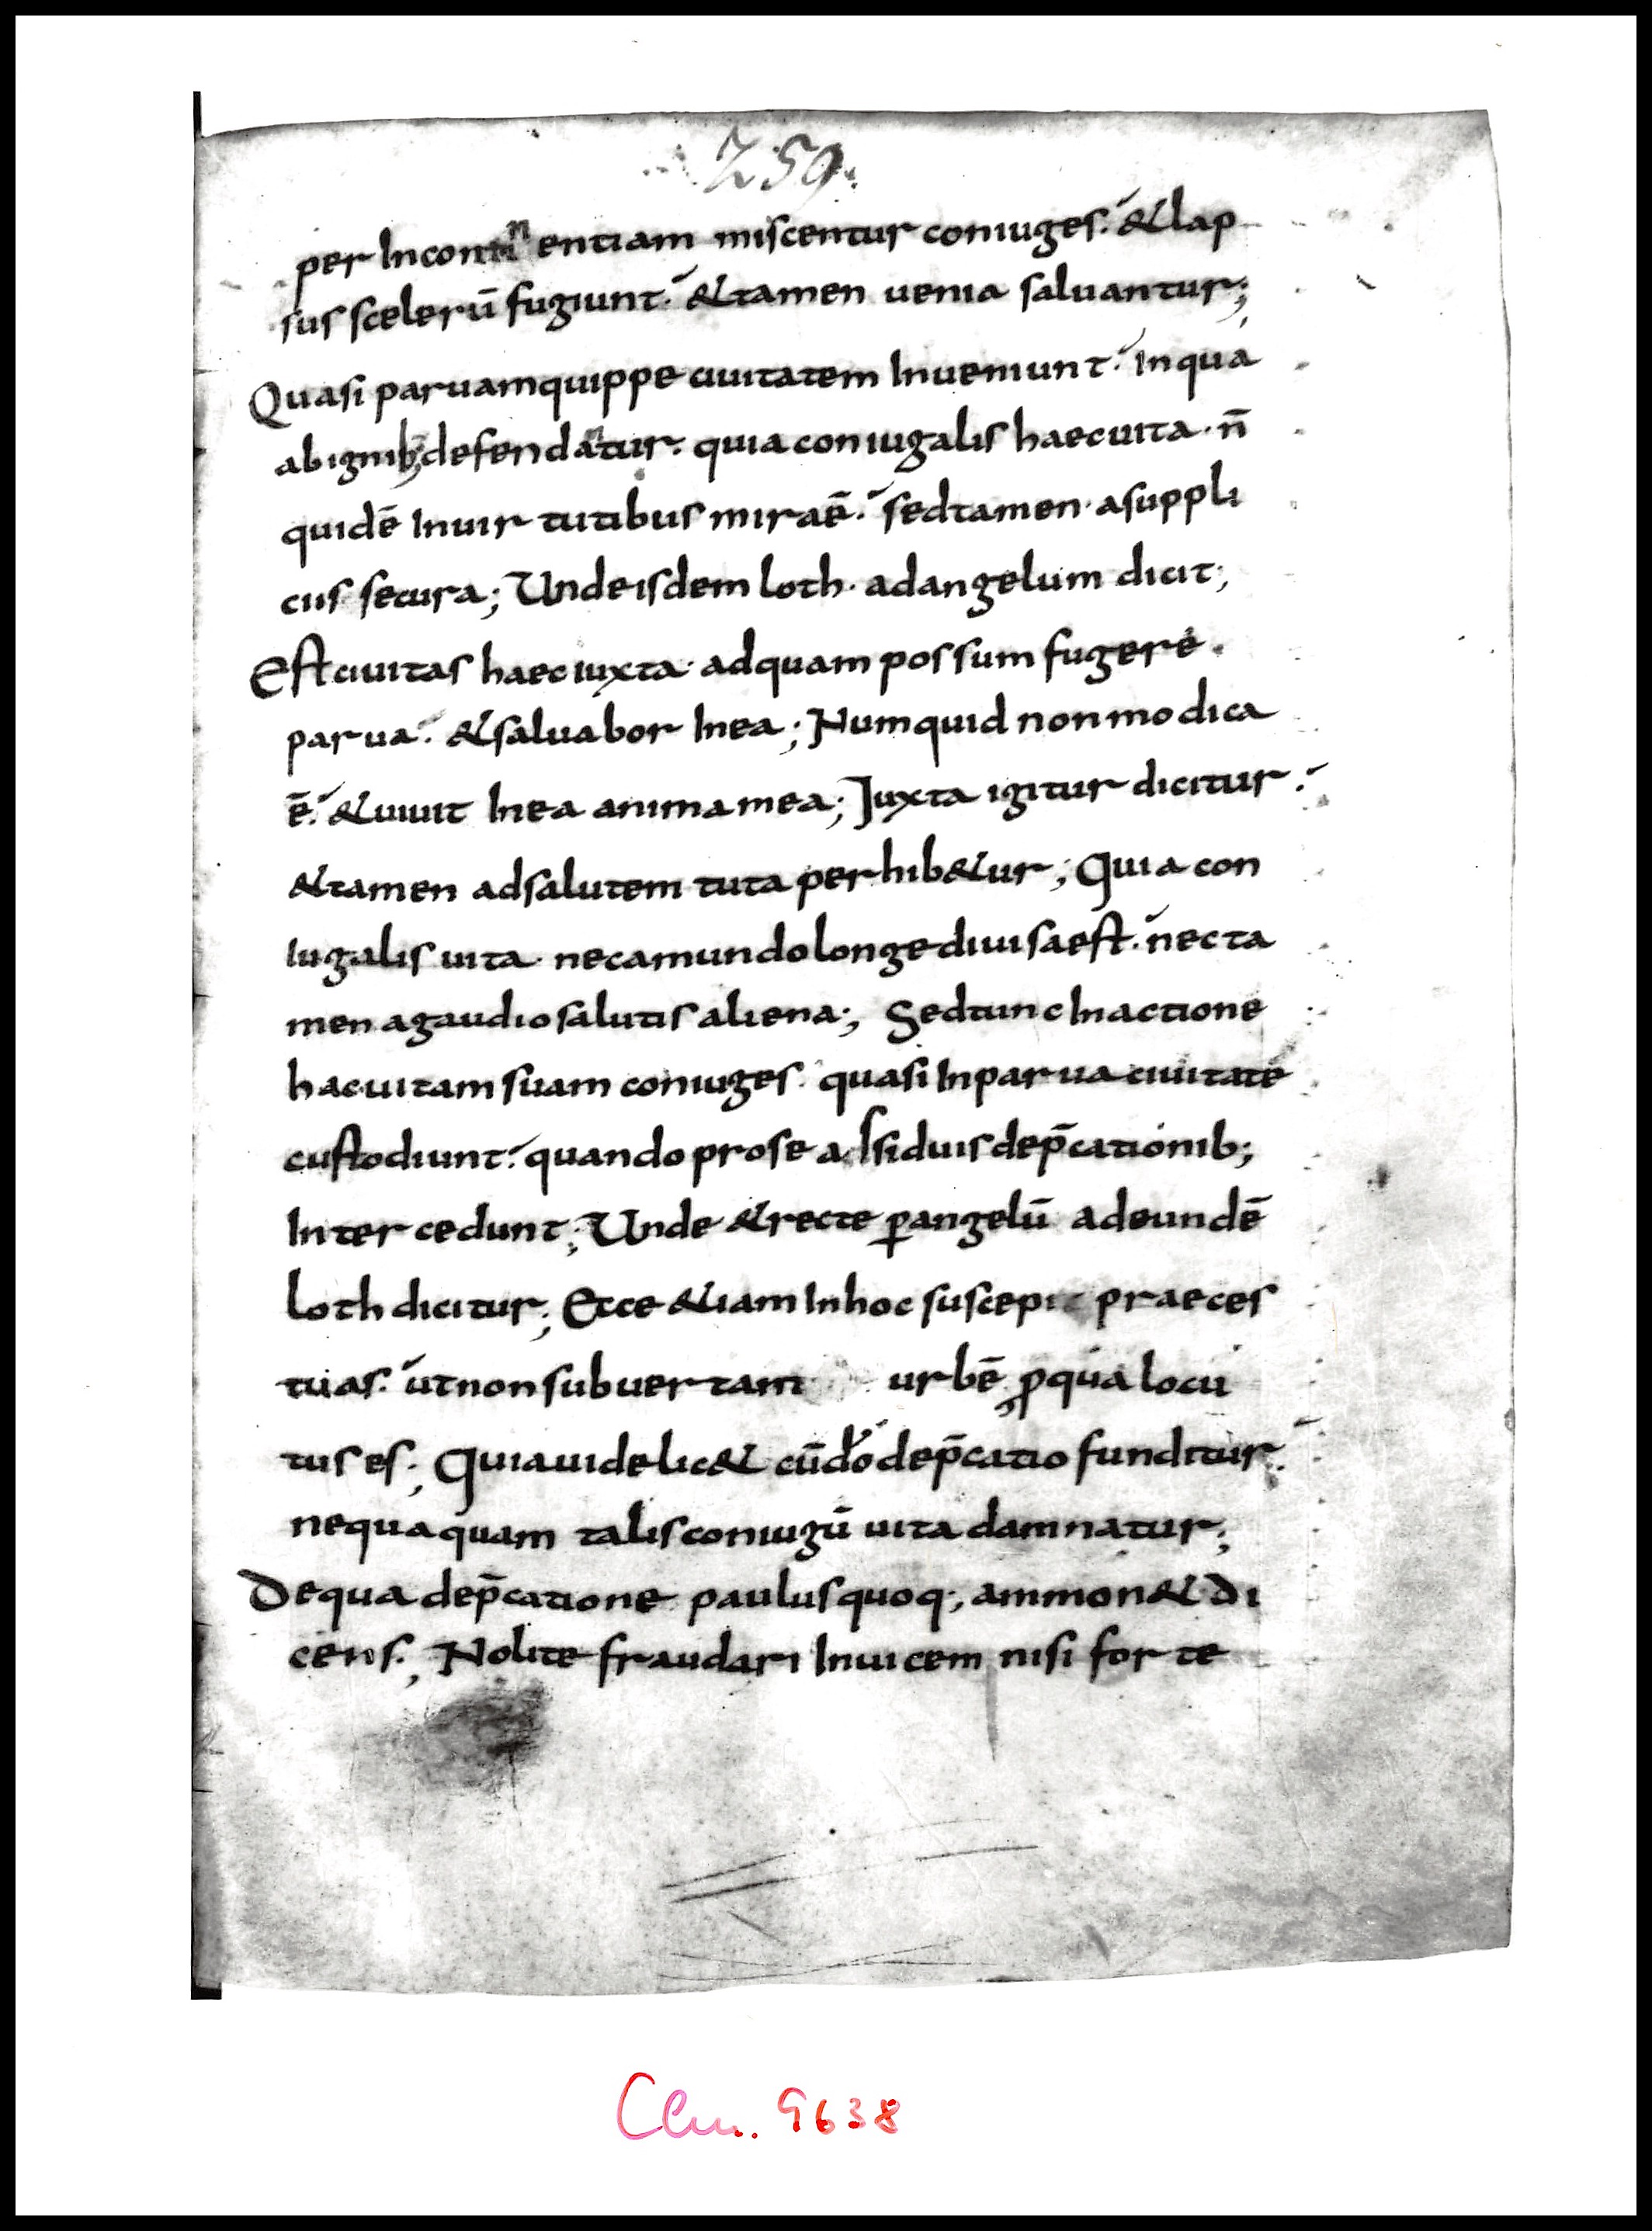 259.
per Incontinentiam miscentur coniuges. &lap
sus scelerū fugiunt. &tamen uenia saluantur;
Quasi paruamquippe ciuitatem Inueniunt. Inqua
abignib; defendantur. quiaconiugalis haecuita. n̄
quidē Inuirtutibus miraē. sedtamen. asuppli
ciis secura; Undeisdem loth. adangelum dicit;
Estciuitas haeciuxta. adquam possum fugere.
parua. &saluabor Inea; Numquid nonmodica
ē. &uiuit Inea animamea; Juxta igitur dicitur.
&tamen adsalutem tuta perhib&ur; Quia con
Iugalis uita. necamundolonge diuisaest. necta
men agaudiosalutis aliena; Sedtunc Inactione
hacuitam suam coniuges. quasi Inparua ciuitate
custodiunt. quando prose adsiduis dep̄cationib;
Intercedunt; Unde &recte ꝑangelū adeundē
loth dicitur; Ecce &iam Inhoc suscepi praeces
tuas. utnonsubuertam urbē ꝓqua locu
tus es; Quiauidelic& cūdō dep̄catio funditur.
nequaquam talisconiugū uita damnatur;
Dequa dep̄catione paulusquoq; ammon& di
cens; Nolite fraudari Inuicem nisi forte
Clm. 9638